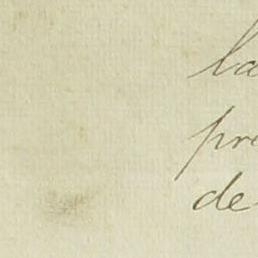 la
pre
de